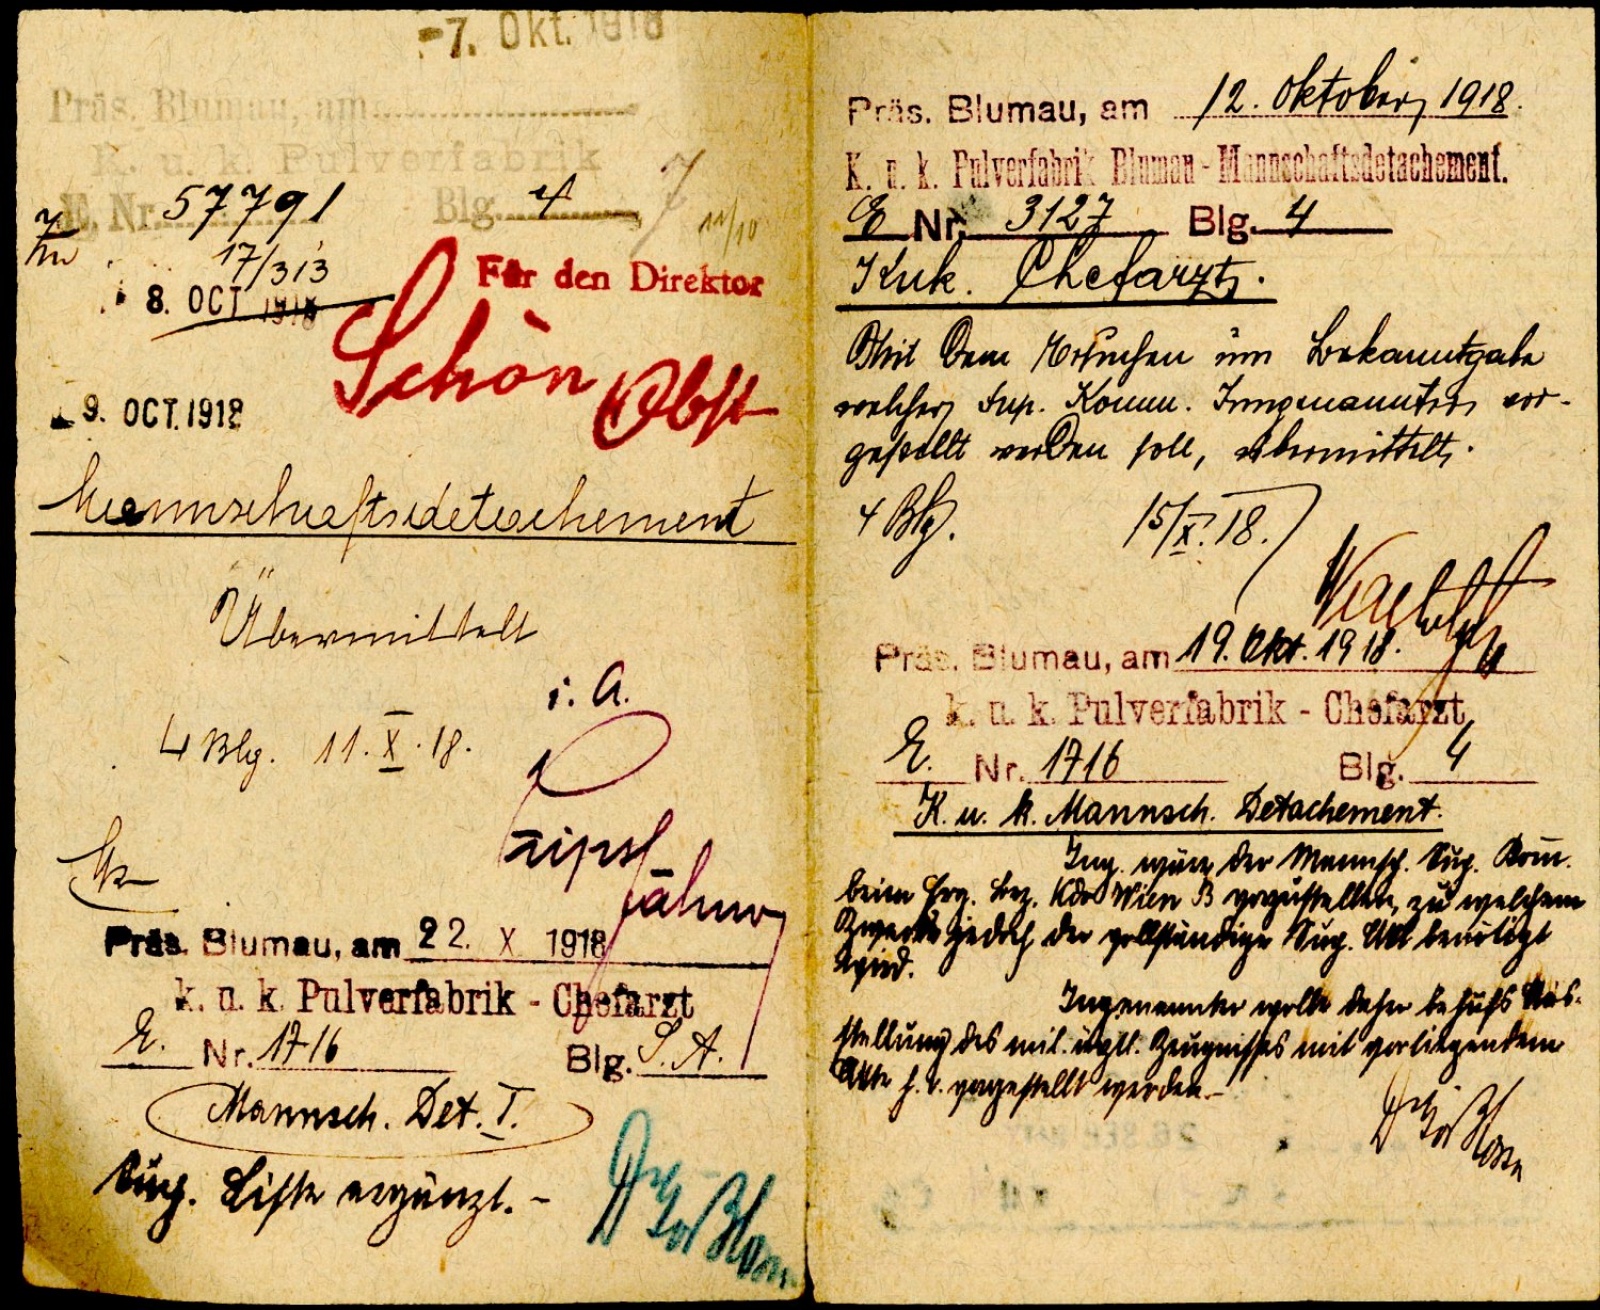 -7. Okt. 1918
Präs. Blumau, am
K. u. k. Pulverfabrik
E. Nr. 57791 Blg. 4
17/313
11/10
8. OCT. 1918
Für den Direktor
Schön Obst
9. OCT. 1918
Mannschaftsdetachement
Übermittelt
i. A.
4 Blg. 11. X. 18.
Präs. Blumau, am 22. X 1918
k. u. k. Pulverfabrik - Chefarzt
E. Nr. 1716 Blg. S. A.
Mannsch. Det. I.
Sup. Liste ergänzt. -
Präs. Blumau, am 12. Oktober 1918.
K. u. k. Pulverfabrik Blumau - Mannschaftsdetachement.
E Nr. 3127 Blg. 4
Kuk. Chefarzt.
Mit dem Ersuchen um Bekanntgabe
welcher Sup. Komm. Inngenannter vor-
gestellt werden soll, übermittelt.
4 Blg. 15/X. 18.
Präs. Blumau, am 19. Okt. 1918.
k. u. k. Pulverfabrik - Chefarzt
E. Nr. 1716 Blg. 4
K. u. k. Mannsch. Detachement.
Ing. wäre der Mannsch. Sup. Kom.
beim Erg. Bez. Kdo Wien B vorzustellen, zu welchem
Zwecke jedoch der vollständige Sup. Akt benötigt
wird.
Ingenannter wolle daher behufs Aus-
stellung des mil. ärztl. Zeugnisses mit vorliegendem
Akte h. a. vorgestellt werden. -